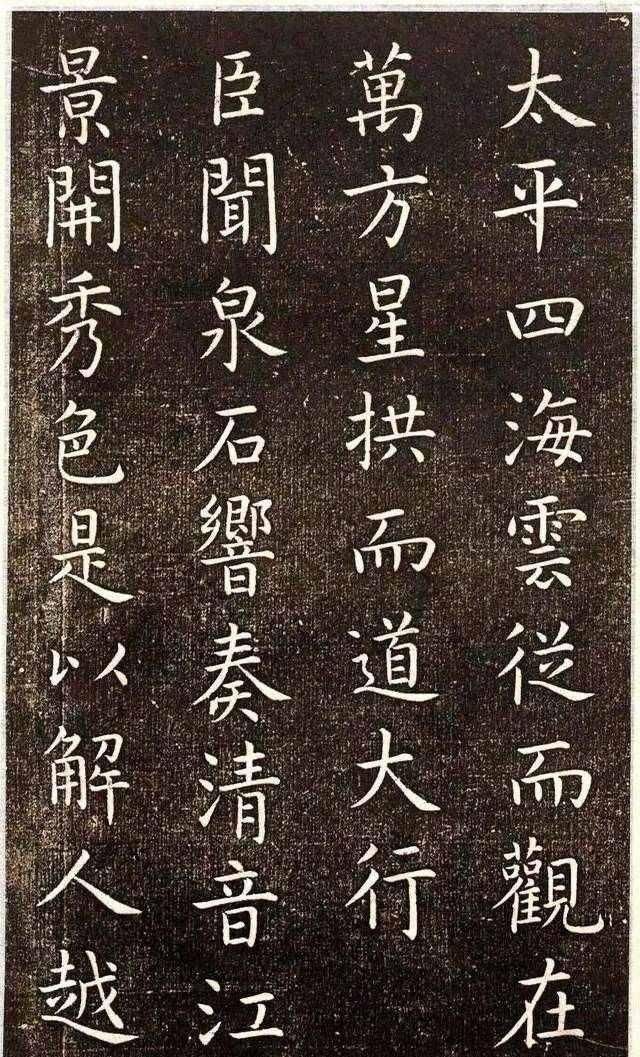 太平四海雲從而觀在
萬方星拱而道大行
臣聞泉石響奏清音江
景開秀色是以解人越